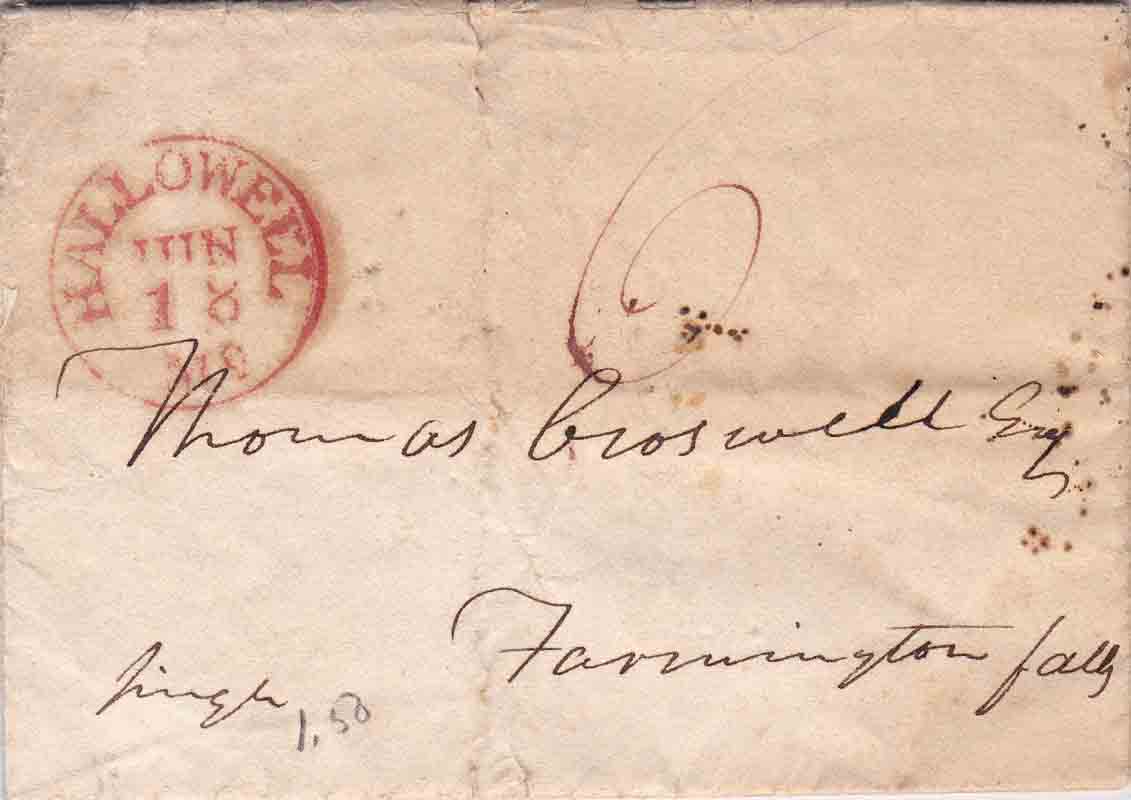 HALLOWELL
JUN
18
Thomas Croswell Esq
Farmington falls
single
1.50